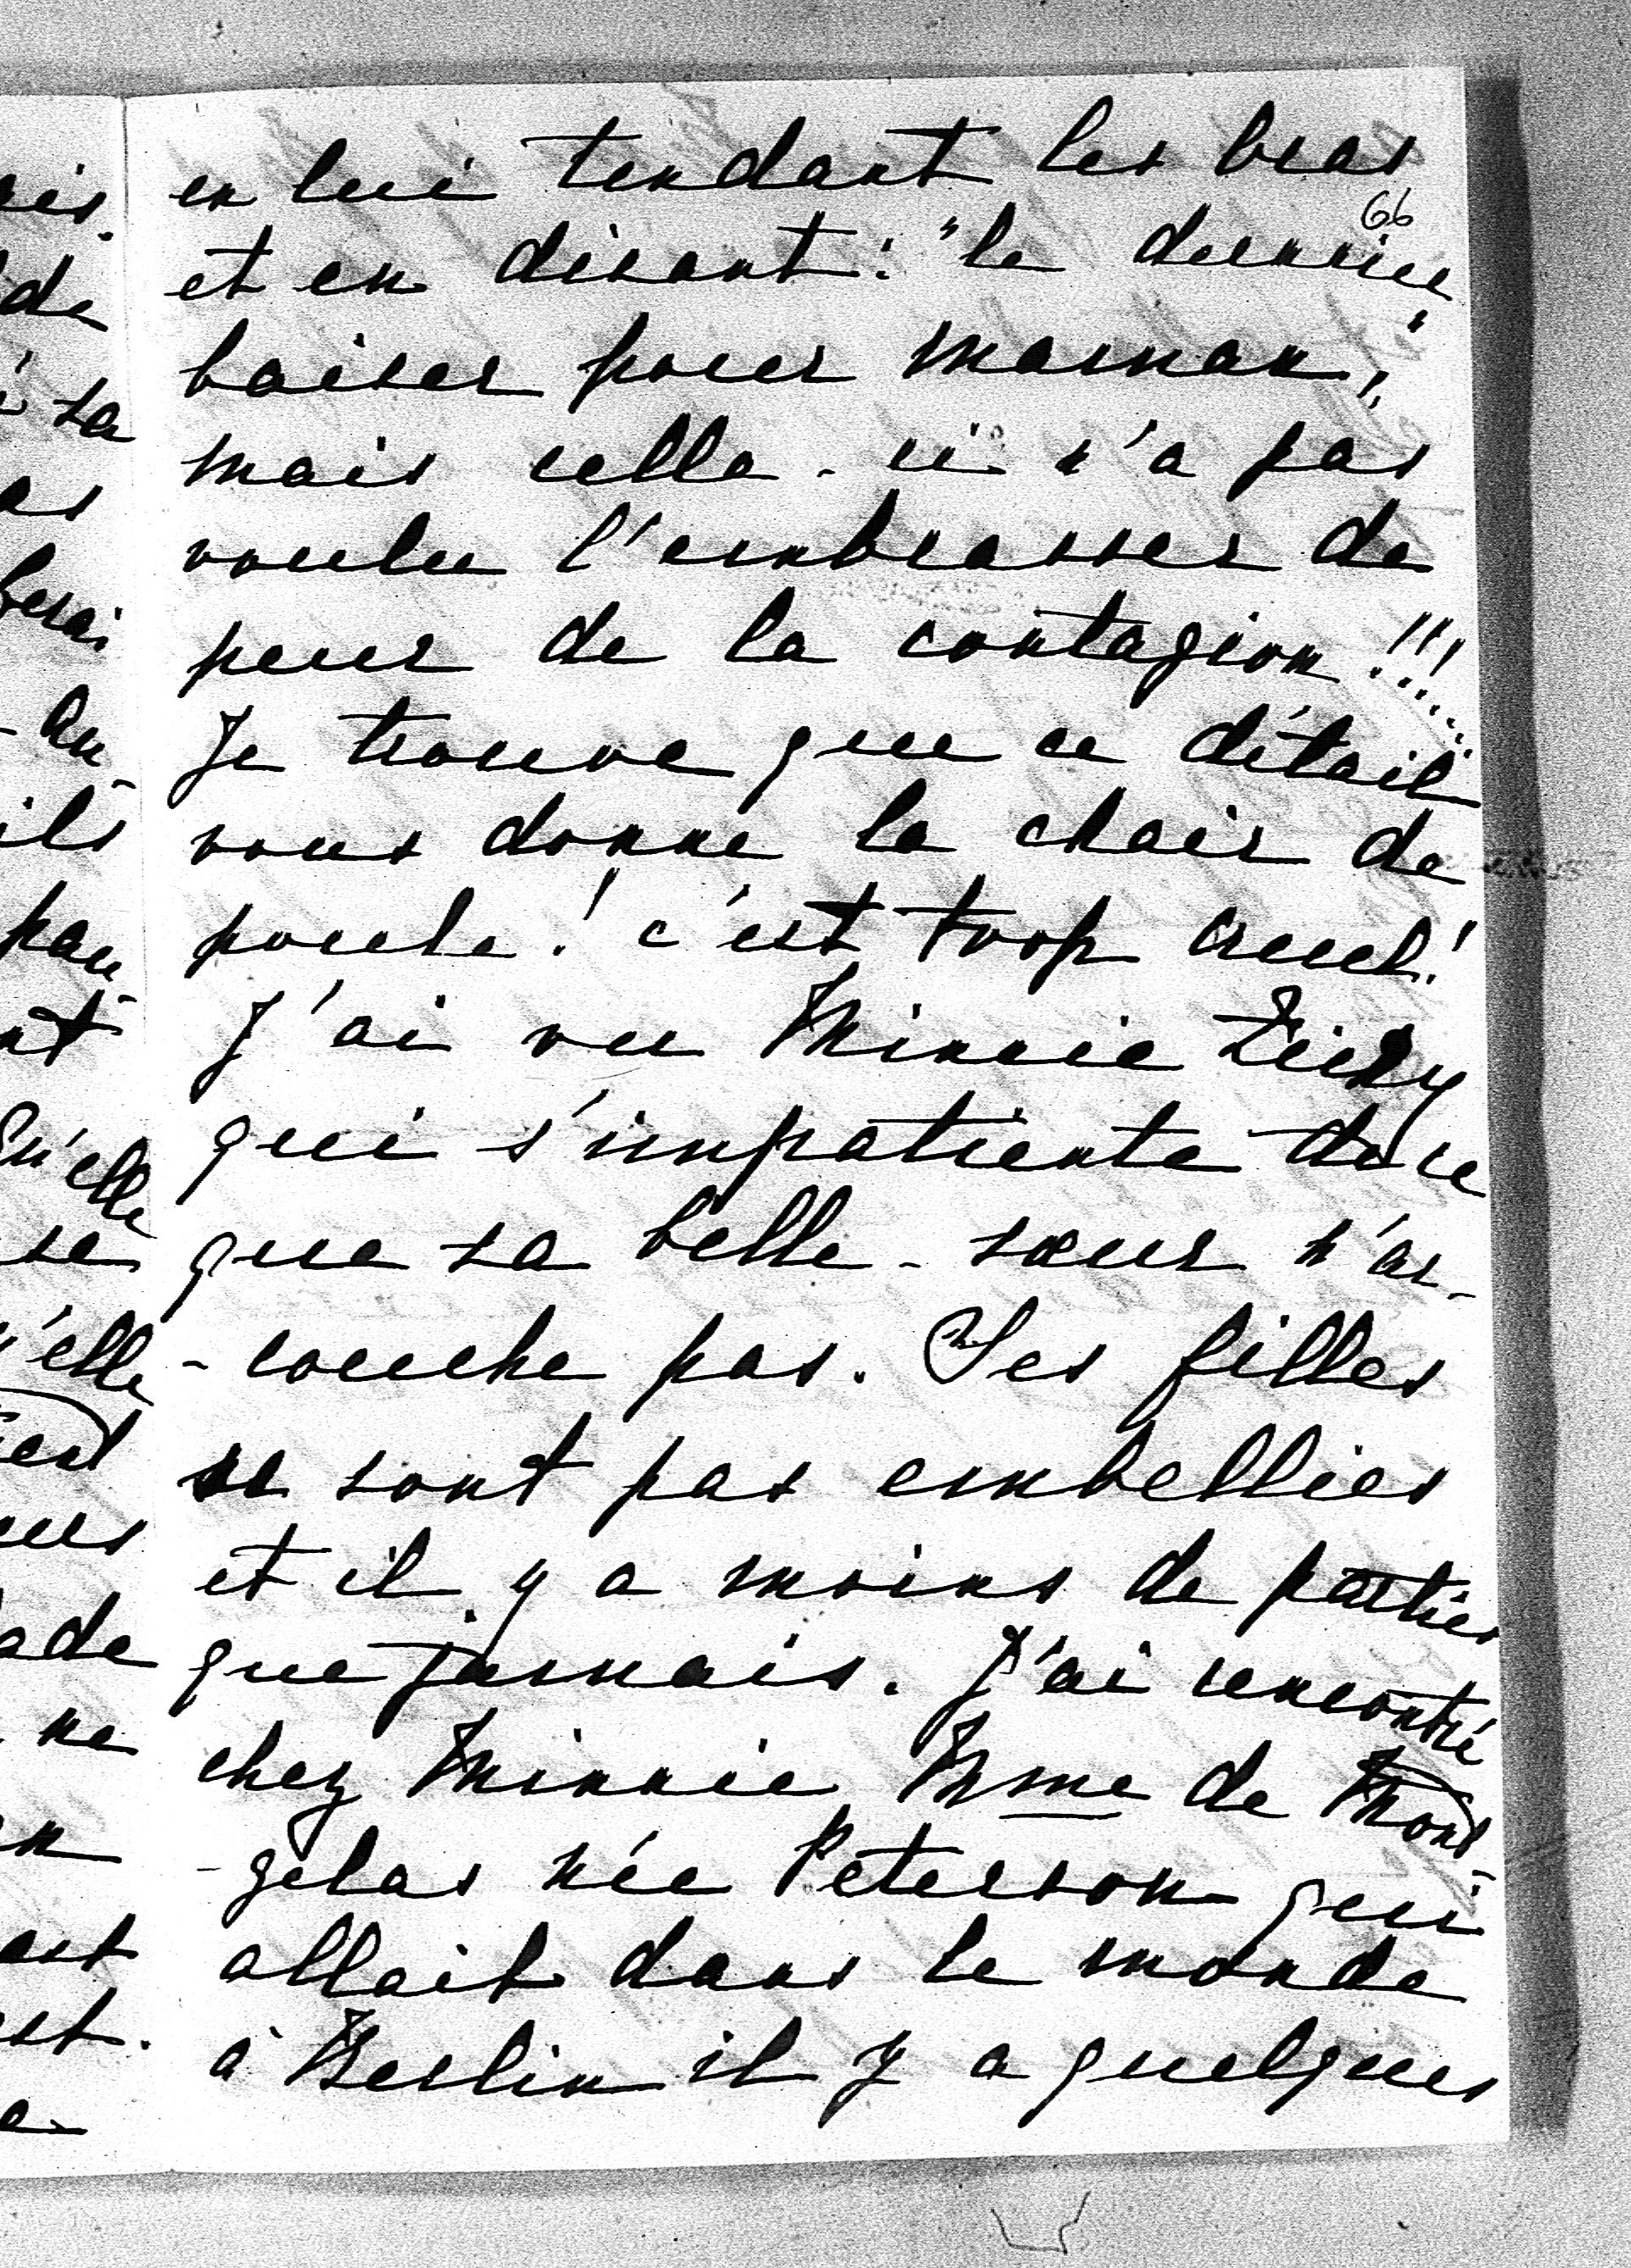 en lui tendant les bras
66
et en disant: "le dernier
baiser pour maman",
mais celle-ci n'a pas
voulu l'embrasser de
peur de la contagion!!!..
Je trouve que ce détail
vous donne la chair de
poule! c'est trop cruel!
J'ai vu Minnie
qui s'impatiente de ce
que sa belle-sœur n'ac-
-couche pas. Ses filles
ne sont pas embellies
et il y a moins de parties
que jamais. J'ai rencontré
chez Minnie Mme de Mont-
-gelas née Peterson qui
allait dans le monde
à Berlin il y a quelques